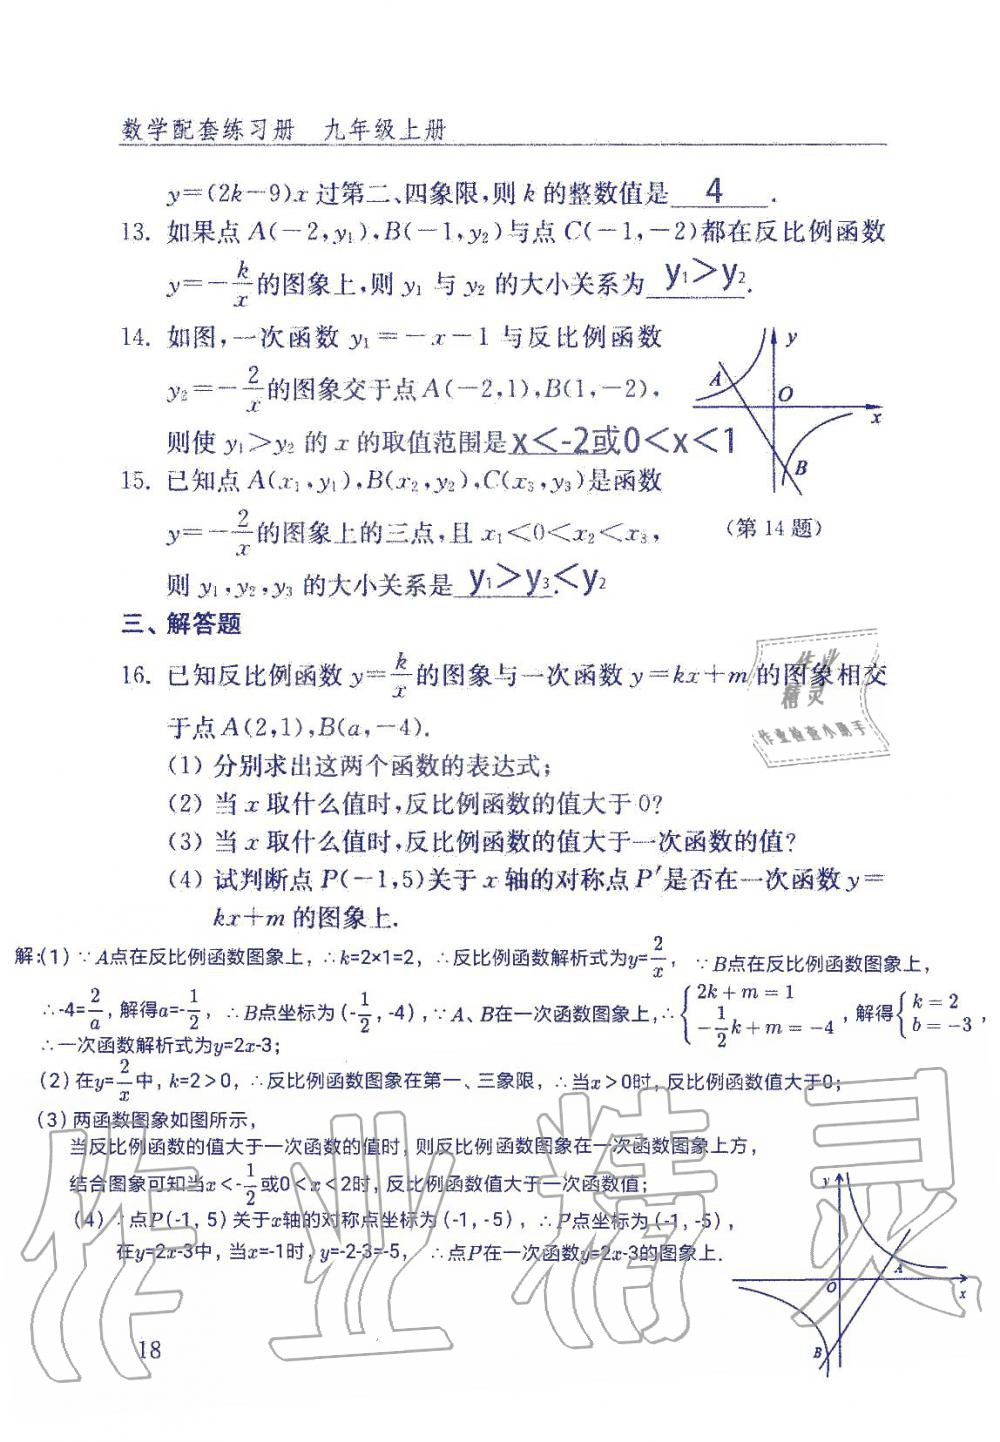 数学配套练习册 九年级上册
y=(2k-9)x 过第二、四象限,则 k 的整数值是 4 .
13. 如果点 A(-2,y₁),B(-1,y₂)与点 C(-1,-2)都在反比例函数
y=-k/x的图象上,则 y₁ 与 y₂ 的大小关系为 y₁>y₂.
14. 如图,一次函数 y₁=-x-1 与反比例函数
y₂=-2/x的图象交于点 A(-2,1),B(1,-2),
则使 y₁>y₂ 的 x 的取值范围是x<-2或0<x<1
15. 已知点 A(x₁,y₁),B(x₂,y₂),C(x₃,y₃)是函数
y=-2/x的图象上的三点,且 x₁<0<x₂<x₃,
则 y₁,y₂,y₃ 的大小关系是 y₁>y₃.<y₂
y
A
O
x
B
(第 14 题)
三、解答题
16. 已知反比例函数 y=k/x的图象与一次函数 y=kx+m 的图象相交
于点 A(2,1),B(a,-4).
(1) 分别求出这两个函数的表达式;
(2) 当 x 取什么值时,反比例函数的值大于 0?
(3) 当 x 取什么值时,反比例函数的值大于一次函数的值?
(4) 试判断点 P(-1,5)关于 x 轴的对称点 P′是否在一次函数 y=
kx+m 的图象上.
作业
精灵
作业检查小助手
解:(1) ∵A点在反比例函数图象上, ∴k=2×1=2, ∴反比例函数解析式为y=2/x, ∵B点在反比例函数图象上,
∴-4=2/a, 解得a=-1/2, ∴B点坐标为 (-1/2, -4), ∵A、B在一次函数图象上,∴{2k+m=1 -1/2k+m=-4, 解得{k=2 b=-3,
∴一次函数解析式为y=2x-3;
(2) 在y=2/x中, k=2>0, ∴反比例函数图象在第一、三象限, ∴当x>0时, 反比例函数值大于0;
(3) 两函数图象如图所示,
当反比例函数的值大于一次函数的值时, 则反比例函数图象在一次函数图象上方,
结合图象可知当x<-1/2或0<x<2时, 反比例函数值大于一次函数值;
(4) ∵点P(-1, 5)关于x轴的对称点坐标为 (-1, -5), ∴P点坐标为 (-1, -5),
在y=2x-3中, 当x=-1时, y=-2-3=-5, ∴点P在一次函数y=2x-3的图象上.
y
A
O
x
B
作业精灵
18